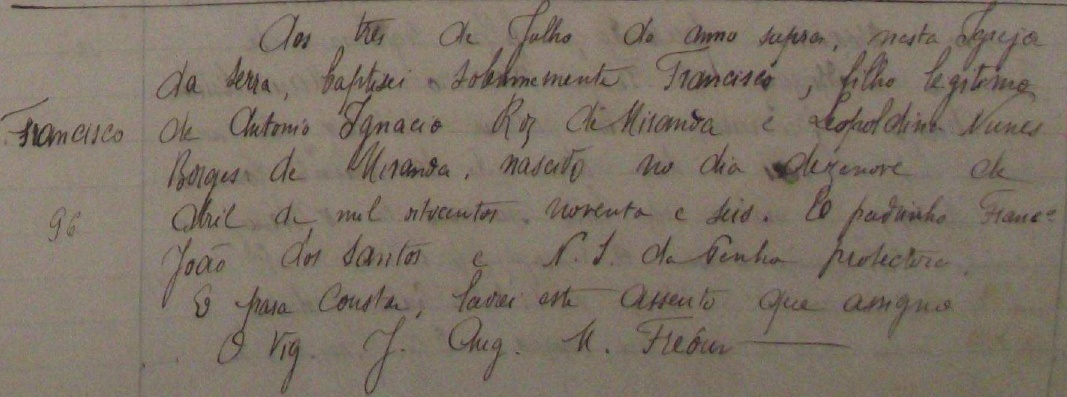 Aos tres de Julho do anno supra, nesta Igreja
da Serra, baptisei solemnemente Francisco, filho legitimo
Francisco
de Antonio Ignacio Roz de Miranda e Leopoldina Nunes
Borges de Miranda, nascido no dia dezenove de
96
Abril de mil oitocentos noventa e seis. E padrinho Franc.º
João dos Santos e N. S. da Penha protectora.
E para constar, lavrei este assento que assigno
O Vig. J. Aug. M.